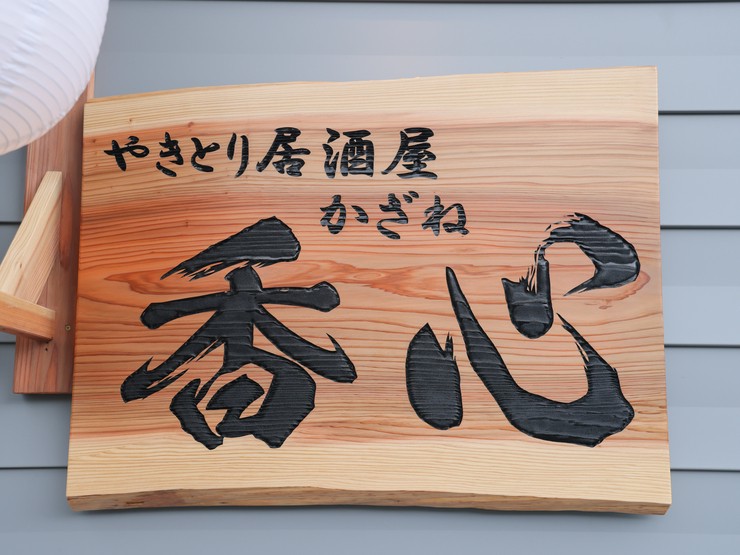 やきとり居酒屋
かざね
香心